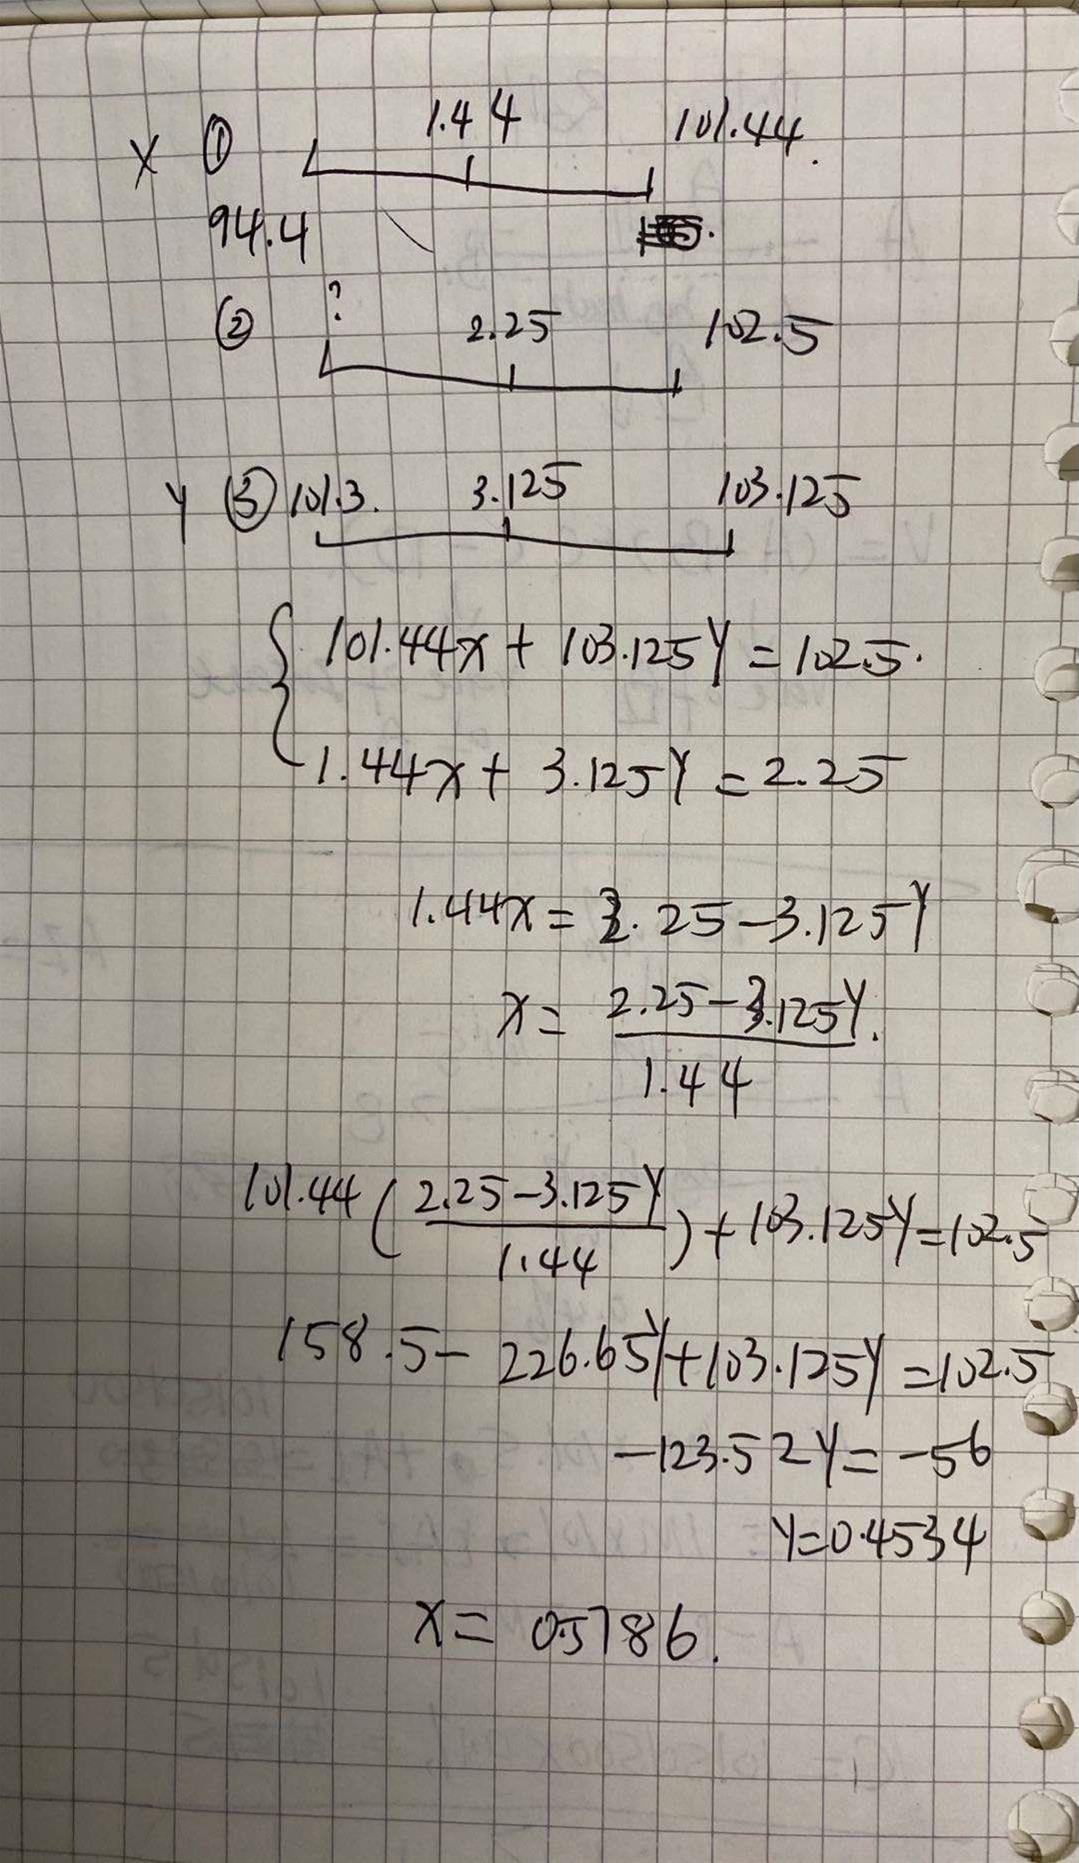 X ① 1.44 101.44.
94.4
② ? 2.25 102.5
Y ③ 101.3. 3.125 103.125
101.44x + 103.125Y = 102.5.
1.44x + 3.125Y = 2.25
1.44x = 2.25 - 3.125Y
x = (2.25 - 3.125Y) / 1.44.
101.44 ( (2.25 - 3.125Y) / 1.44 ) + 103.125Y = 102.5
158.5 - 226.65Y + 103.125Y = 102.5
-123.52Y = -56
Y = 0.4534
x = 0.5786.